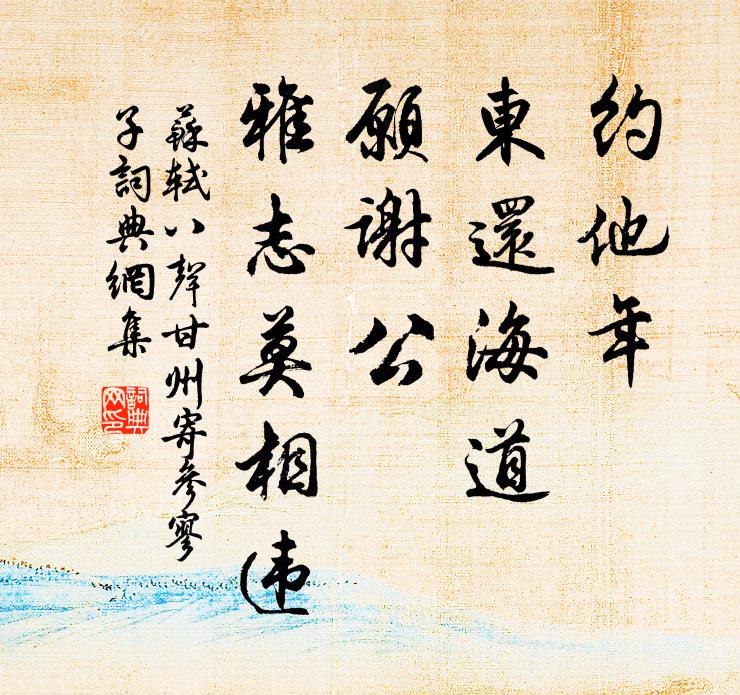 約他年
東還海道
願謝公
雅志莫相违
蘇軾八聲甘州寄參寥
子詞典網集
詞典
网印